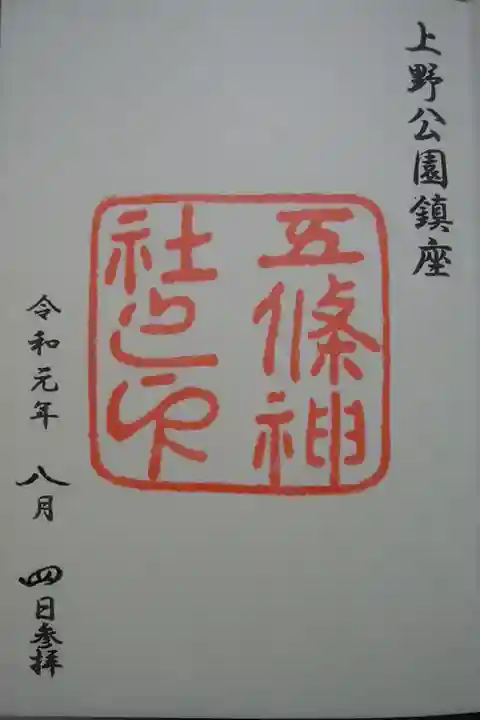 上野公園鎮座
五條神
社之印
令和元年 八月 四日参拝